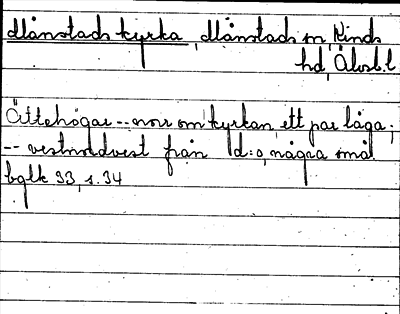 Månstads kyrka, Månstads sn, Kinds
hd, Älvsb.l
Ättehögar -- norr om kyrkan, ett par låga;
-- vestnordvest från d:o, några små
bglk 33, s. 34